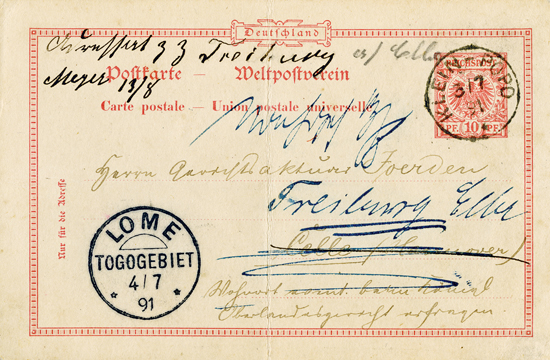 Deutschland
Adressat z Z Freiburg
Meyer 13/8
Postkarte – Weltpostverein
Carte postale – Union postale universelle
REICHSPOST
10 PF. 10
KLEIN-POPO
3/7
91
Nur für die Adresse
Herrn Gerichtsaktuar Foerden
Freiburg Elbe
Celle (Hannover)
Wohnort event. beim König
Oberlandesgericht erfragen.
LOME
TOGOGEBIET
4/7
91